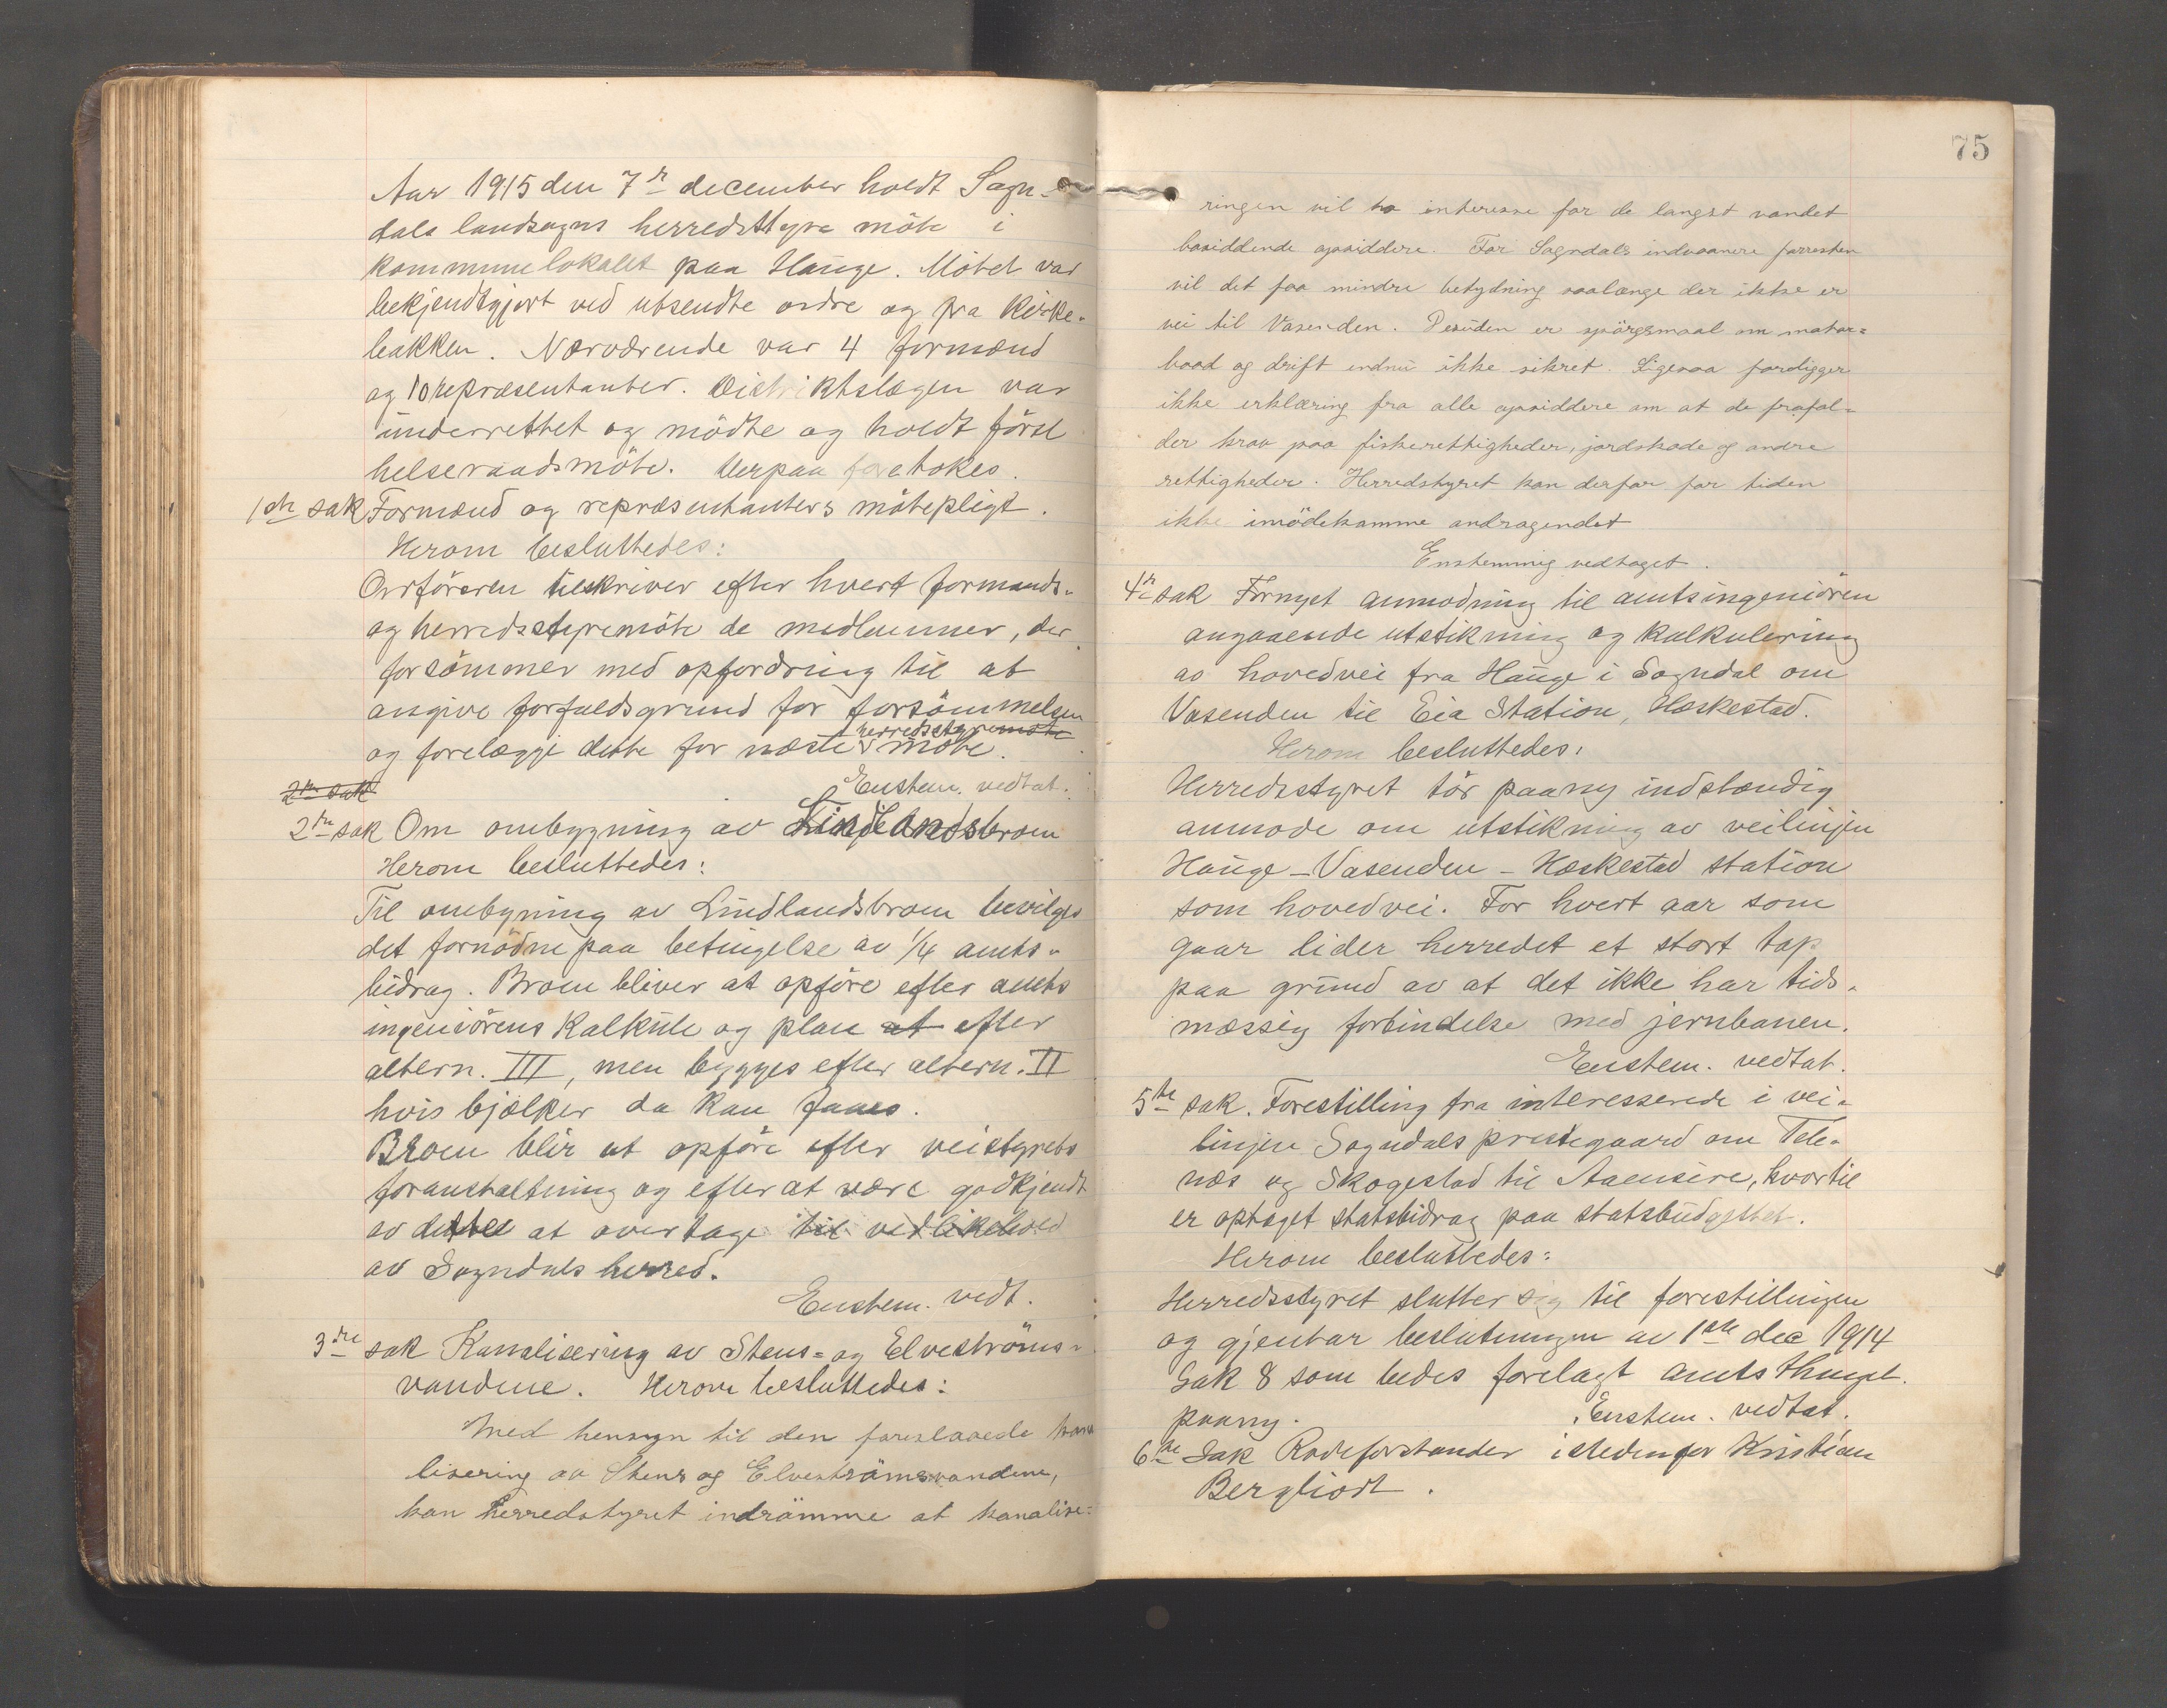 Aar 1915 den 7de december holdt Sogn-
dals landsogns herredsstyre möte i
kommunelokalet paa Hauge. Mötet var
bekjendtgjort ved utsendte ordre og fra kirke-
bakken. Nærværende var 4 formænd
og 10 repræsentanter. Distriktslægen var
underrettet og mödte og holdt först
helseraadsmöte. Derpaa foretokes.
1ste sak Formænd og repræsentanters mötepligt.
Herom besluttedes:
Ordföreren tilskriver efter hvert formands-
og herredsstyremöte de medlemmer, der
forsömmer med opfordring til at
angive forfaldsgrund for forsömmelsen
herredsstyremöte
og forelægge dette for næste möte.
Enstem. vedtat.
2den sak
2den sak Om ombygning av Lindlandsbroen
Herom besluttedes:
Til ombygning av Lindlandsbroen bevilges
det fornödne paa betingelse av 1/4 amts-
bidrag. Broen bliver at opföre efter amts
ingeniörens kalkule og plan at efter
altern. III, men bygges efter altern. II
hvis bjælker da kan faaes.
Broen blir at opföre efter veistyrets
foranstaltning og efter at være godkjendt
av dette at overtage til vedlikehold
av Sogndals herred.
Enstem. vedt.
3dje sak Kanalisering av Stens- og Elveströms-
vandene. Herom besluttedes:
Med hensyn til den foreslaaede kana
lisering av Stens og Elveströmsvandene,
kan herredstyret indrömme at kanalise-
75
ringen vil ha interesse for de langst vandet
boesiddende opsiddere. For Sogndals indvaanere forresten
vil det faa mindre betydning saalænge der ikke er
vei til Vasenden. Desuden er spörgsmaal om motor-
baad og drift endnu ikke sikret. Ligesaa foreligger
ikke erklæring fra alle opsiddere om at de frafal-
der krav paa fiskerettigheder, jordskade og andre
rettigheder. Herredstyret kan derfor for tiden
ikke imödekomme andragendet
Enstemmig vedtaget.
4de sak Fornyet anmodning til amtsingeniören
angaaende utstikning og kalkulering
av hovedvei fra Hauge i Sogndal om
Vasenden til Eia Station, Heskestad.
Herom besluttedes:
Herredsstyret tör paany indstændig
anmode om utstikning av veilinjen
Hauge - Vasenden - Heskestad station
som hovedvei. For hvert aar som
gaar lider herredet et stort tap
paa grund av at det ikke har tids-
mæssig forbindelse med jernbanen.
Enstem. vedtat.
5te sak. Forestilling fra interesserede i vei-
linjen Sogndals prestegaard om Tele-
næs og Skogestad til Aaensire, hvortil
er optaget statsbidrag paa statsbudgettet.
Herom besluttedes:
Herredsstyret slutter sig til forestillingen
og gjentar beslutningen av 1ste dec 1914
Sak 8 som bedes forelagt amtsthinget.
paany.
Enstem. vedtat.
6te Sak Rodeforstander istedenfor Kristian
Bergliodt.